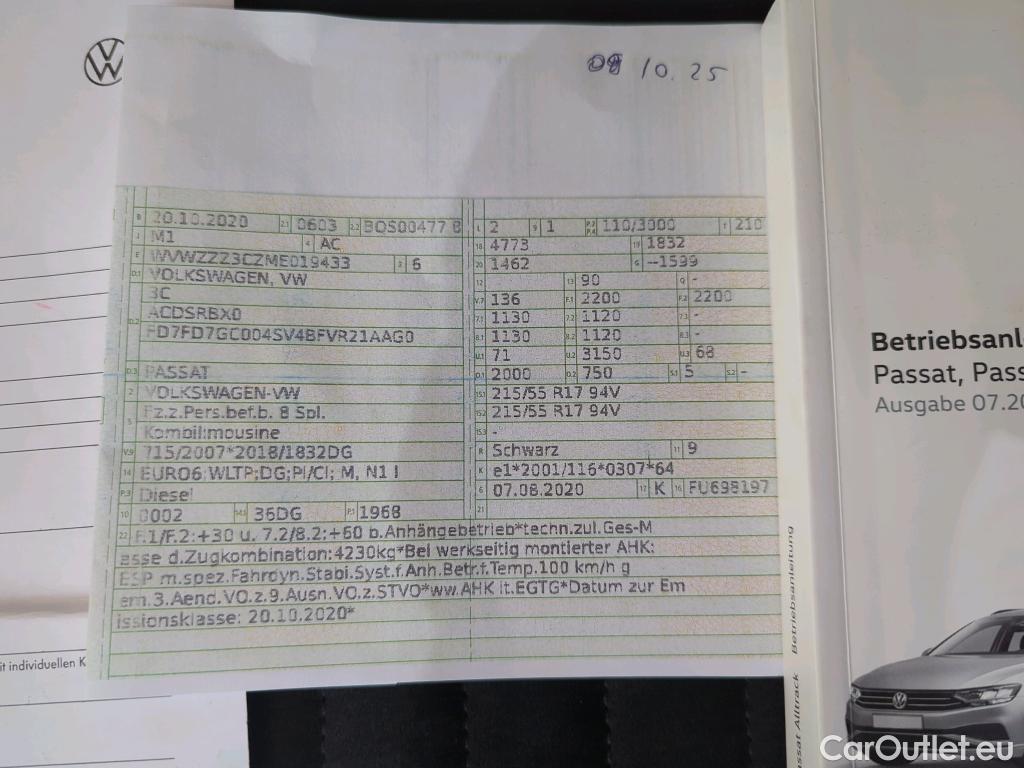 09 10.25
B 20.10.2020 2.1 0603 2.2 BOS00477 8
J M1 4 AC
E WVWZZZ3CZME019433 3 6
D.1 VOLKSWAGEN, VW
3C
ACDSRBX0
D.2 FD7FD7GC004SV4BFVR21AAG0
D.3 PASSAT
2 VOLKSWAGEN-VW
5 Fz.z.Pers.bef.b. 8 Spl.
Kombilimousine
V.9 715/2007*2018/1832DG
14 EURO6;WLTP;DG;PI/CI; M, N1 I
P.3 Diesel
10 0002 14.1 36DG P.1 1968
L 2 9 1 P.2 P.4 110/3000 T 210
18 4773 19 1832
20 1462 G --1599
12 - 13 90 Q -
V.7 136 F.1 2200 F.2 2200
7.1 1130 7.2 1120 7.3 -
8.1 1130 8.2 1120 8.3 -
U.1 71 U.2 3150 U.3 68
O.1 2000 O.2 750 S.1 5 S.2 -
15.1 215/55 R17 94V
15.2 215/55 R17 94V
15.3 -
R Schwarz 11 9
K e1*2001/116*0307*64
6 07.08.2020 17 K 16 FU698197
21
22 F.1/F.2:+30 u. 7.2/8.2:+60 b.Anhängebetrieb*techn.zul.Ges-M
asse d.Zugkombination:4230kg*Bei werkseitig montierter AHK:
ESP m.spez.Fahrdyn.Stabi.Syst.f.Anh.Betr.f.Temp.100 km/h g
em.3.Aend.VO.z.9.Ausn.VO.z.STVO*ww.AHK lt.EGTG*Datum zur Em
issionsklasse: 20.10.2020*
it individuellen K
Betriebsanl
Passat, Pass
Ausgabe 07.20
assat Alltrack Betriebsanleitung
CarOutlet.eu